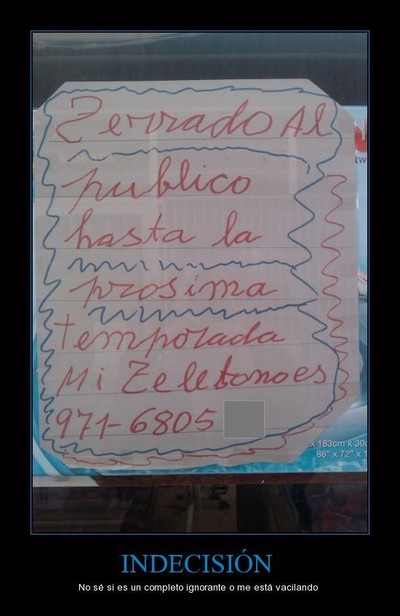 Zerrado Al
publico
hasta la
prosima
temporada
Mi Zeletonoes
971-6805
x 183cm x 30c
86" x 72" x 1
INDECISIÓN
No sé si es un completo ignorante o me está vacilando